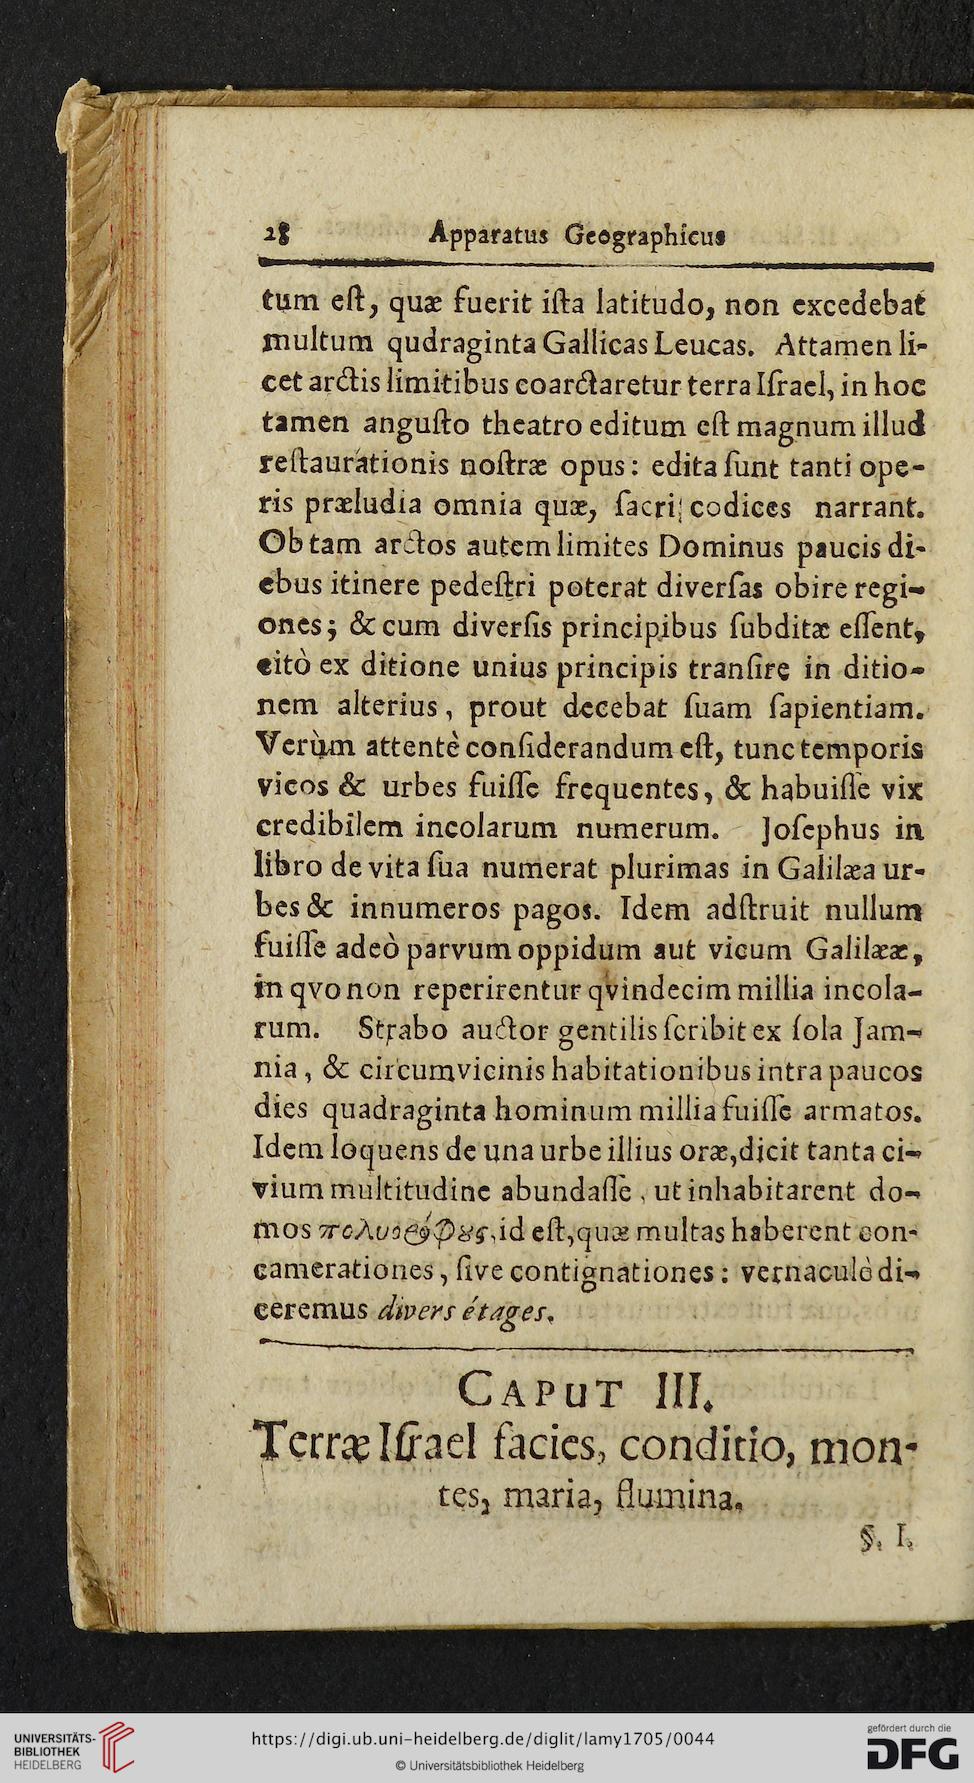 28 Apparatus Geographicus
tum eſt, quæ fuerit iſta latitudo, non excedebat
multum qudraginta Gallicas Leucas. Attamen li-
cet arctis limitibus coarctaretur terra Iſrael, in hoc
tamen anguſto theatro editum eſt magnum illud
reſtaurationis noſtræ opus: edita ſunt tanti ope-
ris præludia omnia quæ, ſacri codices narrant.
Ob tam arctos autem limites Dominus paucis di-
ebus itinere pedeſtri poterat diverſas obire regi-
ones; & cum diverſis principibus ſubditæ eſſent,
citò ex ditione unius principis tranſire in ditio-
nem alterius, prout decebat ſuam ſapientiam.
Verùm attentè conſiderandum eſt, tunc temporis
vicos & urbes fuiſſe frequentes, & habuiſſe vix
credibilem incolarum numerum. Joſephus in
libro de vita ſua numerat plurimas in Galilæa ur-
bes & innumeros pagos. Idem adſtruit nullum
fuiſſe adeò parvum oppidum aut vicum Galilææ,
in qvo non reperirentur qvindecim millia incola-
rum. Strabo auctor gentilis ſcribit ex ſola Jam-
nia, & circumvicinis habitationibus intra paucos
dies quadraginta hominum millia fuiſſe armatos.
Idem loquens de una urbe illius oræ, dicit tanta ci-
vium multitudine abundaſſe, ut inhabitarent do-
mos πολυορόφους, id eſt, quæ multas haberent con-
camerationes, ſive contignationes: vernaculè di-
ceremus divers étages.
CAPUT III.
Terræ Iſrael facies, conditio, mon-
tes, maria, flumina.
§. I.
UNIVERSITÄTS-
BIBLIOTHEK
HEIDELBERG
https://digi.ub.uni-heidelberg.de/diglit/lamy1705/0044
© Universitätsbibliothek Heidelberg
gefördert durch die
DFG